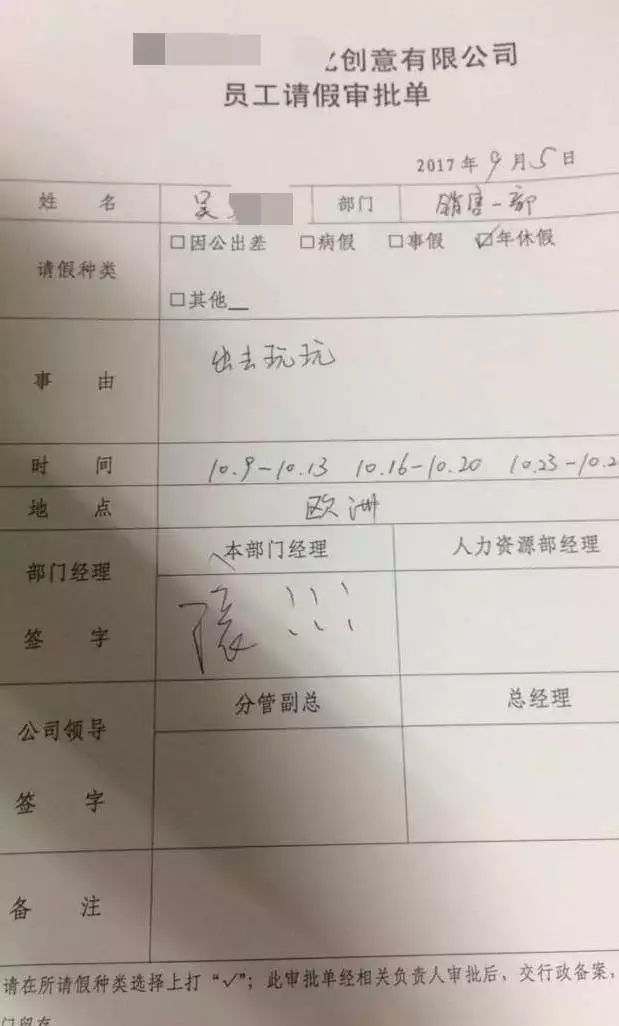 创意有限公司
员工请假审批单
2017年9月5日
姓 名 吴 部门 销售一部
请假种类 □因公出差 □病假 □事假 ☑年休假
□其他__
事 由 出去玩玩
时 间 10.9-10.13 10.16-10.20 10.23-10.2
地 点 欧洲
部门经理 本部门经理 人力资源部经理
签 字 张
公司领导 分管副总 总经理
签 字
备 注
请在所请假种类选择上打“✓”；此审批单经相关负责人审批后，交行政备案，
门留存